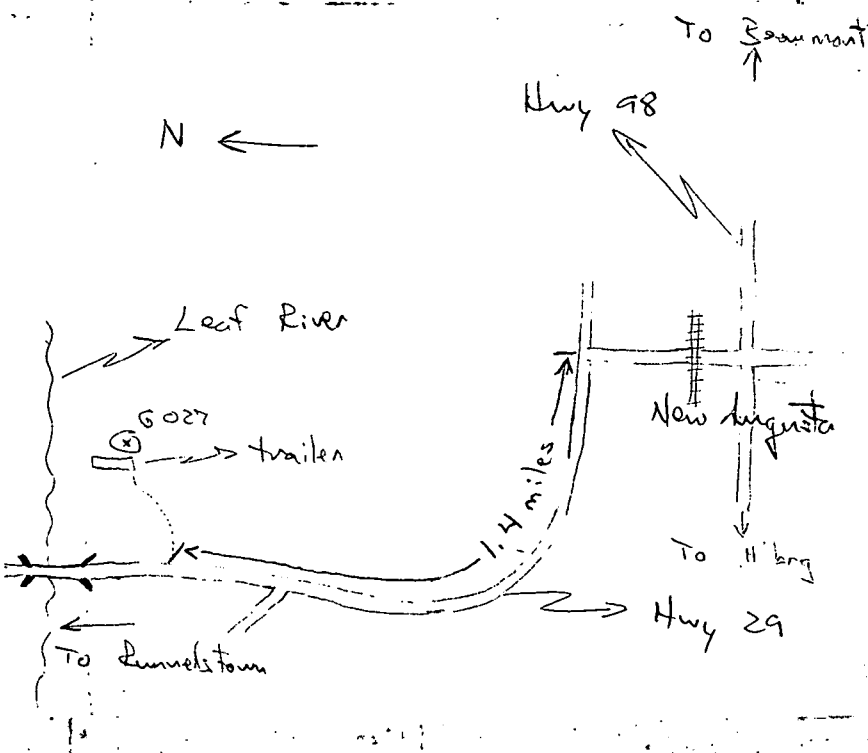 To Beaumont
Hwy 98
N
Leaf River
G027
trailer
New Augusta
1.4 miles
To H'burg
Hwy 29
To Runnelstown